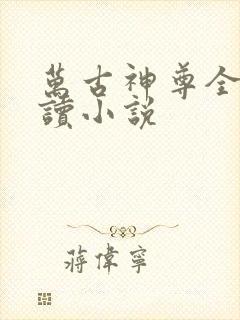 萬古神尊全
讀小説
蔣偉寧